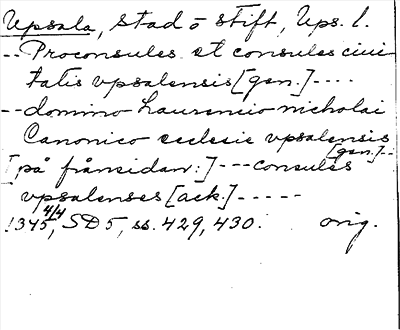 Upsala, stad o stift, Ups. l.
-- Proconsules et consules ciui
tatis vpsalensis [gen.] ----
-- domino Laurencio nicholai
Canonico ecclesie vpsalensis
[gen.]--
[på frånsidan:] --- consules
vpsalenses [ack.] -----
1345 4/4, SD 5, ss. 429, 430. orig.